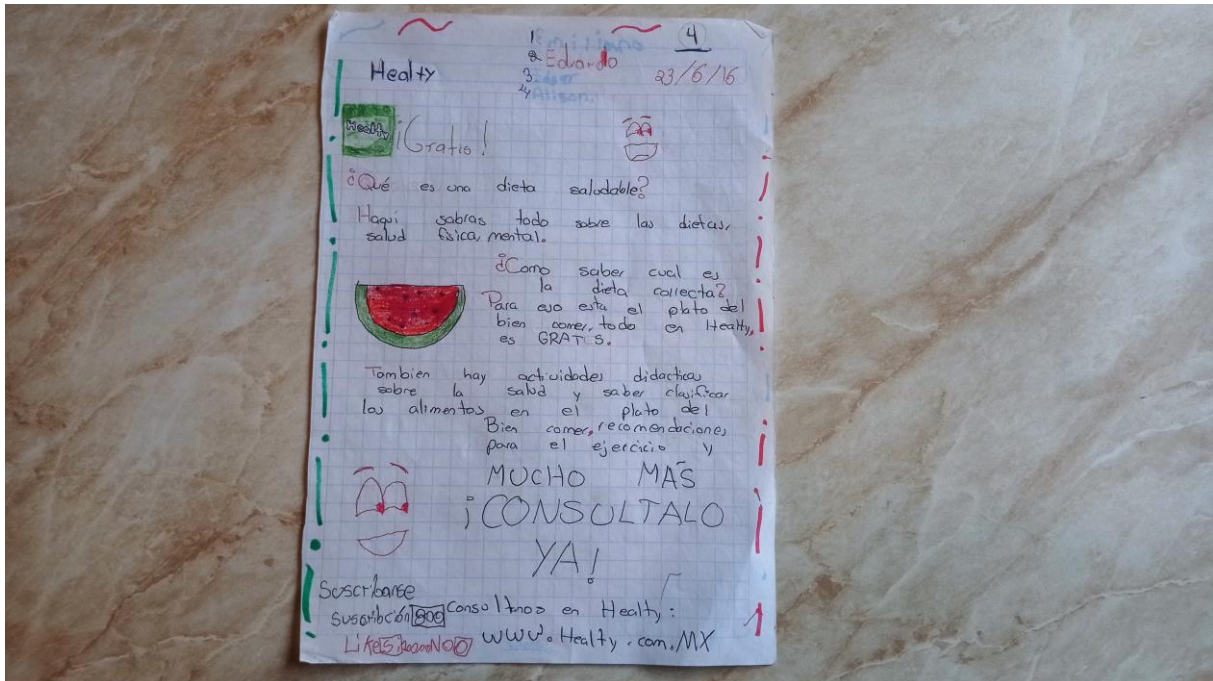 4
1
2 Eduardo
3
4
Healty
23/6/16
Healty
¡Gratis!
¿Qué es una dieta saludable?
Haqui sabras todo sobre las dietas,
salud fisica, mental.
¿Como saber cual es
la dieta correcta?
Para eso esta el plato del
bien comer, todo en Healty,
es GRATIS.
Tambien hay actividades didacticas
sobre la salud y saber clasificar
los alimentos en el plato del
Bien comer, recomendaciones
para el ejercicio y
MUCHO MAS
¡CONSULTALO
YA!
Suscribanse
Suscribción 800 Consultnos en Healty:
Like NO 0 www.Healty.com.MX